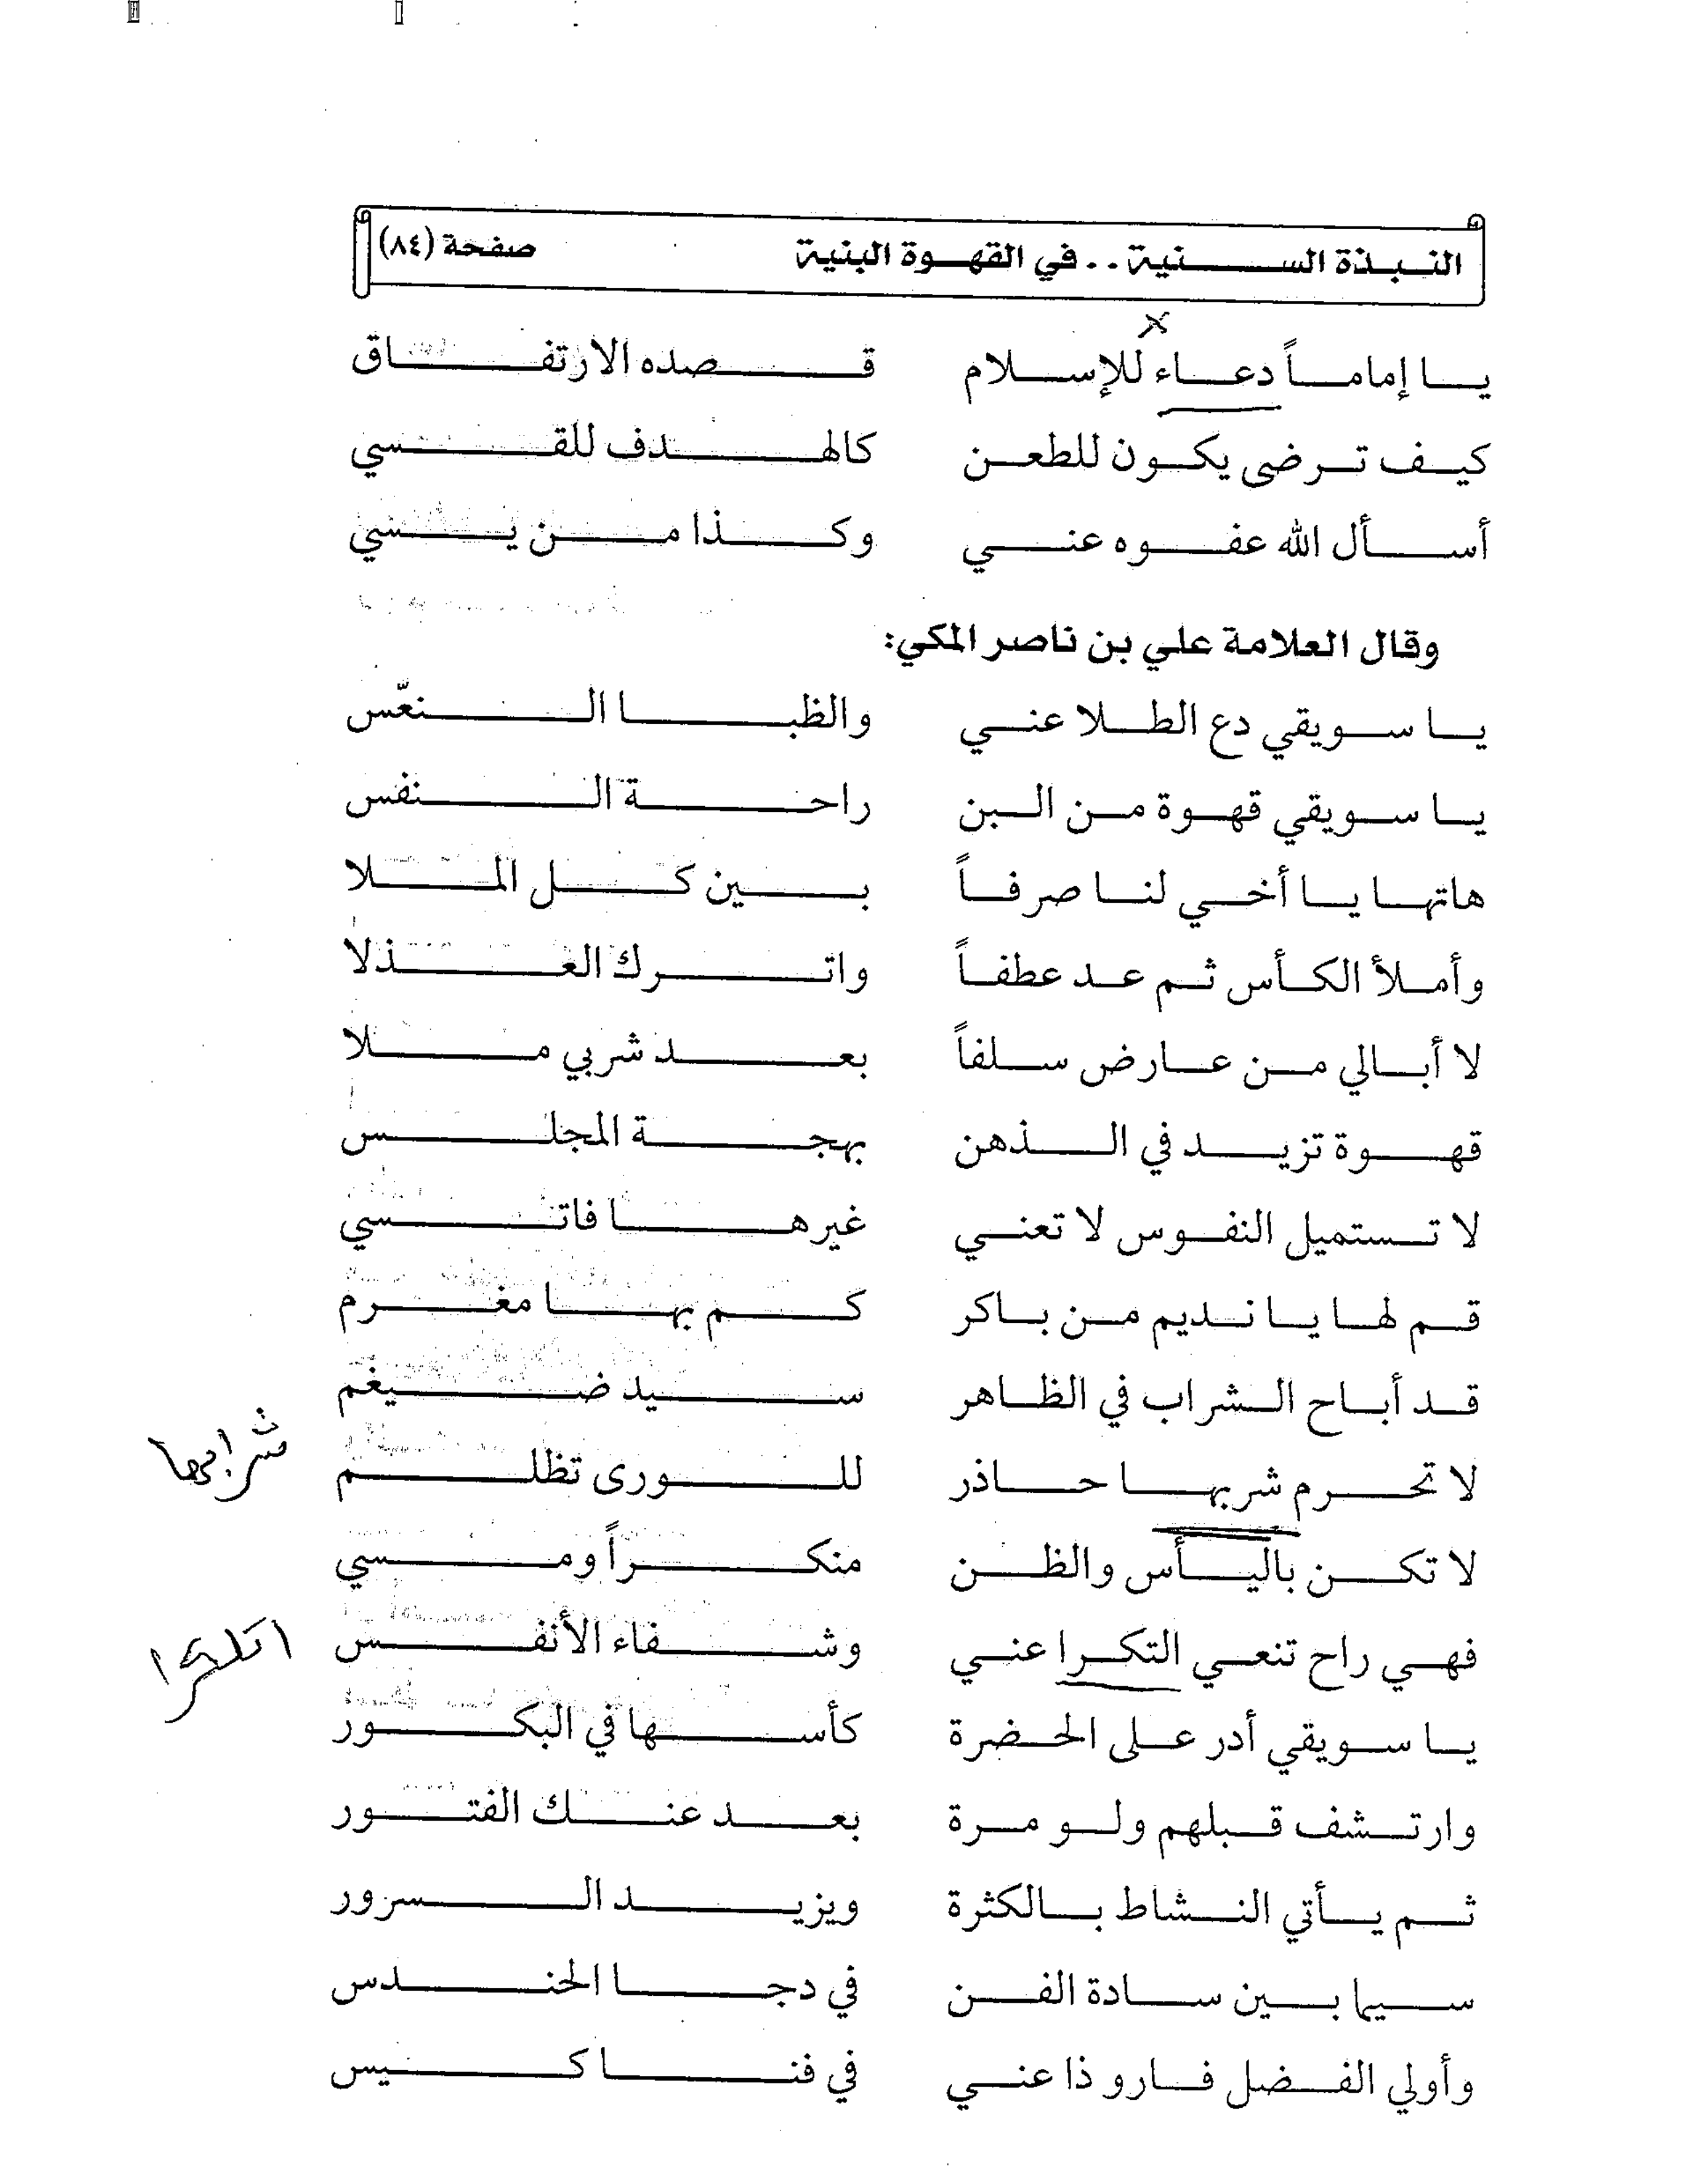 النبذة السنية .. في القهوة البنية صفحة (٨٤)
يا إماماً دعاء للإسلام قصده الارتفاق
كيف ترضى يكون للطعن كالهدف للقسي
أسأل الله عفوه عني وكذا من ينسي
وقال العلامة علي بن ناصر المكي:
يا سويقي دع الطلا عني والظبا النعّس
يا سويقي قهوة من البن راحة النفس
هاتها يا أخي لنا صرفاً بين كل الملا
وأملأ الكأس ثم عد عطفاً واترك العذلا
لا أبالي من عارض سلفاً بعد شربي ملا
قهوة تزيد في الذهن بهجة المجلس
لا تستميل النفوس لا تعني غيرها فاتسي
قم لها يا نديم من باكر كم بها مغرم
قد أباح الشراب في الظاهر سيد ضيغم
شرابها
لا تحرم شربها حاذر للورى تظلم
لا تكن باليأس والظن منكراً ومسي
فهي راح تنعي التكرا عني وشفاء الأنفس
يا سويقي أدر على الحضرة كأسها في البكور
وارتشف قبلهم ولو مرة بعد عنك الفتور
ثم يأتي النشاط بالكثرة ويزيد السرور
سيما بين سادة الفن في دجا الحندس
وأولي الفضل فارو ذا عني في فنا كيس